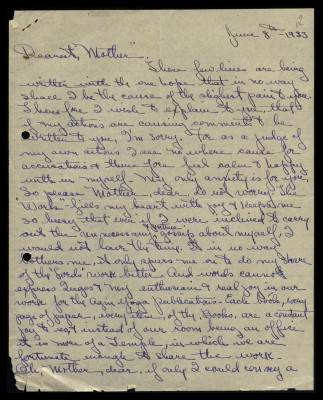 June 8th - 1933
Dearest Mother".
These few lines are being
written with the one hope that in no way
shall I be the cause of the slightest pain to you.
Therefore I wish to explain to you, that
if my actions are causing comments to be
written to you, I'm sorry. For as a judge of
my own actions I see no where cause for
accusations & therefore feel calm & happy
with in myself. My only anxiety is for you
so please Mother, dear, do not worry. The
Work" fills my heart with joy & keeps me
so busy that even if I were inclined to carry
out the unnecessary gossip about myself, I
would not have the time. It in no way
bothers me, it only spurs me on to do my share
of the "Lord's work better. And words cannot
express Inga's & my enthusiasm & real joy in our
work for the Agni Yoga publications. Each book, every
page of paper, every item, of the Books, are a constant
joy to us & instead of our room being an office
it is more of a Temple, in which we are
fortunate enough to share the work.
Oh, Mother, dear, if only I could convey a